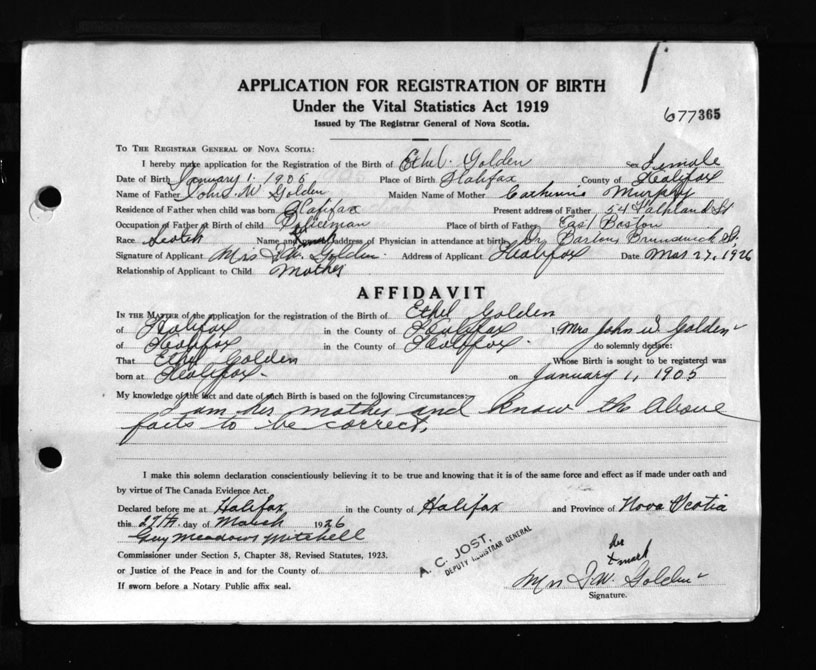 APPLICATION FOR REGISTRATION OF BIRTH
Under the Vital Statistics Act 1919
Issued by The Registrar General of Nova Scotia.
677365
TO THE REGISTRAR GENERAL OF NOVA SCOTIA:
I hereby make application for the Registration of the Birth of Ethel Golden Sex Female
Date of Birth January 1. 1905 Place of Birth Halifax County of Halifax
Name of Father John W Golden Maiden Name of Mother Catherine Murphy
Residence of Father when child was born Halifax Present address of Father 54 Falkland St
Occupation of Father at Birth of child Policeman Place of birth of Father East Boston
Race Scotch Name and address of Physician in attendance at birth Dr Brunswick St,
Signature of Applicant Mrs J.W. Golden Address of Applicant Halifax Date Mar 27, 1926
Relationship of Applicant to Child Mother
AFFIDAVIT
IN THE MATTER of the application for the registration of the Birth of Ethel Golden
of Halifax in the County of Halifax I, Mrs John W Golden
of Halifax in the County of Halifax do solemnly declare:
That Ethel Golden Whose Birth is sought to be registered was
born at Halifax on January 1, 1905
My knowledge of the fact and date of such Birth is based on the following Circumstances:
I am her mother and know the above
facts to be correct.
I make this solemn declaration conscientiously believing it to be true and knowing that it is of the same force and effect as if made under oath and
by virtue of The Canada Evidence Act.
Declared before me at Halifax in the County of Halifax and Province of Nova Scotia
this 27th day of March 1926
Guy Meadows Mitchell
Commissioner under Section 5, Chapter 38, Revised Statutes, 1923.
or Justice of the Peace in and for the County of
If sworn before a Notary Public affix seal.
A. C. JOST,
DEPUTY REGISTRAR GENERAL
her
x mark
Mrs J.W. Golden
Signature.